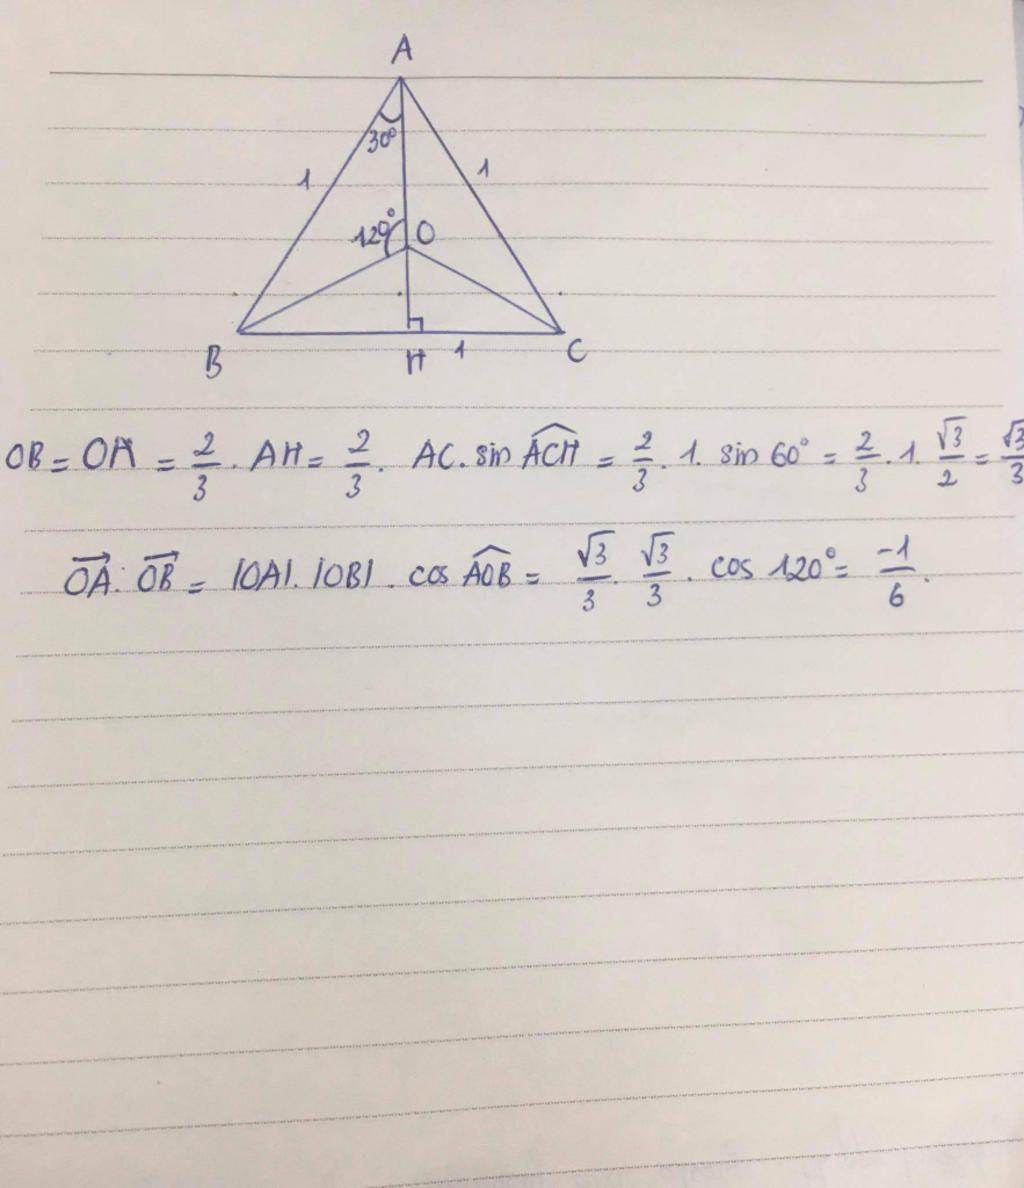 A
30°
1 1
120° O
B H 1 C
OB = OA = 2/3 . AH = 2/3 . AC . sin \widehat{ACH} = 2/3 . 1 . sin 60° = 2/3 . 1 . √3/2 = √3/3
\overrightarrow{OA} . \overrightarrow{OB} = |OA| . |OB| . cos \widehat{AOB} = √3/3 . √3/3 . cos 120° = -1/6 .